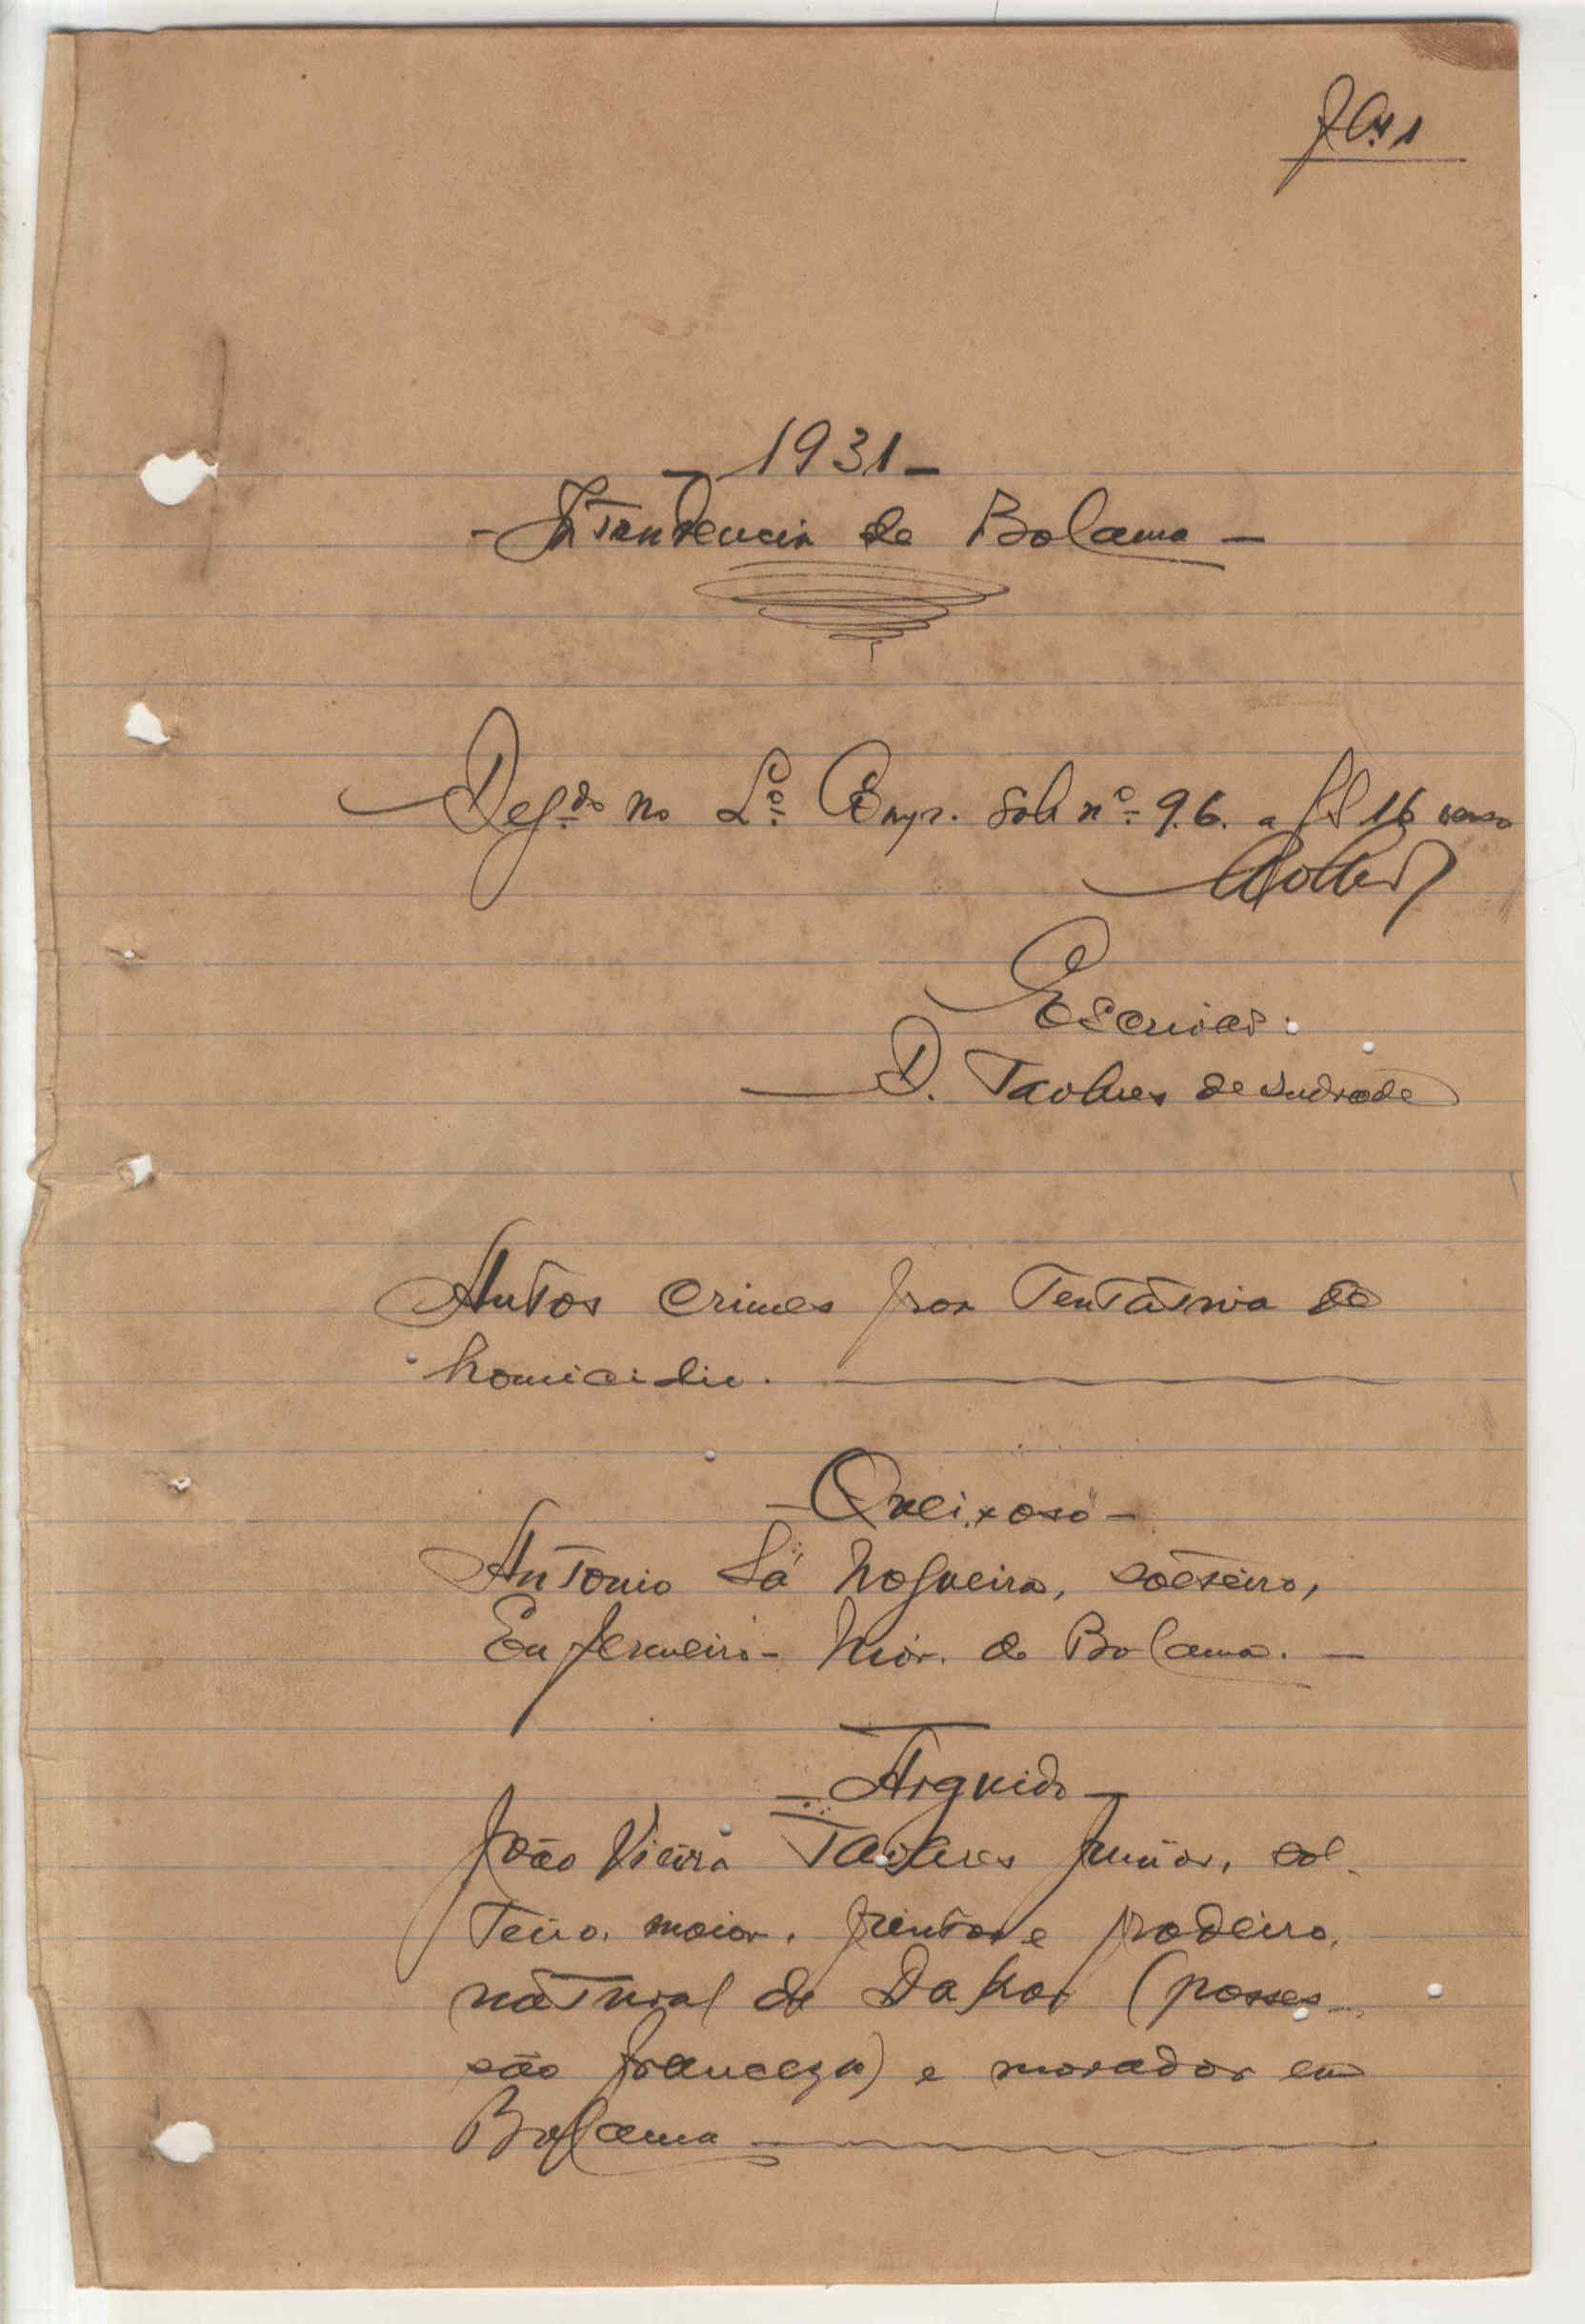 Fls 1
- 1931 -
- Intendencia de Bolama -
Reg.do no L.o sob n.o 96. a fl 16 verso
Escrivão:
D. Tavares de Andrade
Autos crimes por Tentativa de
homicidio.
- Queixoso -
Antonio Sá Nogueira, solteiro,
Enfermeiro - mór. de Bolama. -
- Arguido -
João Vieira Tavares Junior, sol-
teiro, maior, pintor e padeiro,
natural de Dakar (posses-
são franceza) e morador em
Bolama